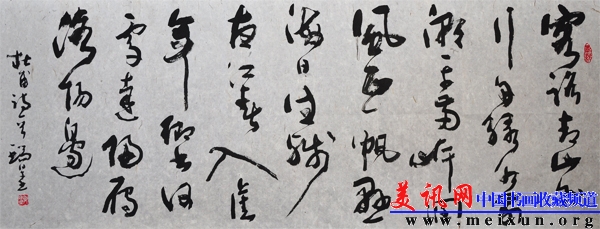 客路青山外
行舟綠水前
潮平兩岸闊
風正一帆懸
海日生殘
夜江春入舊
年鄉書何
處達歸雁
洛陽邊
杜甫詩一首
美讯网 中国书画收藏频道
www.meixun.org